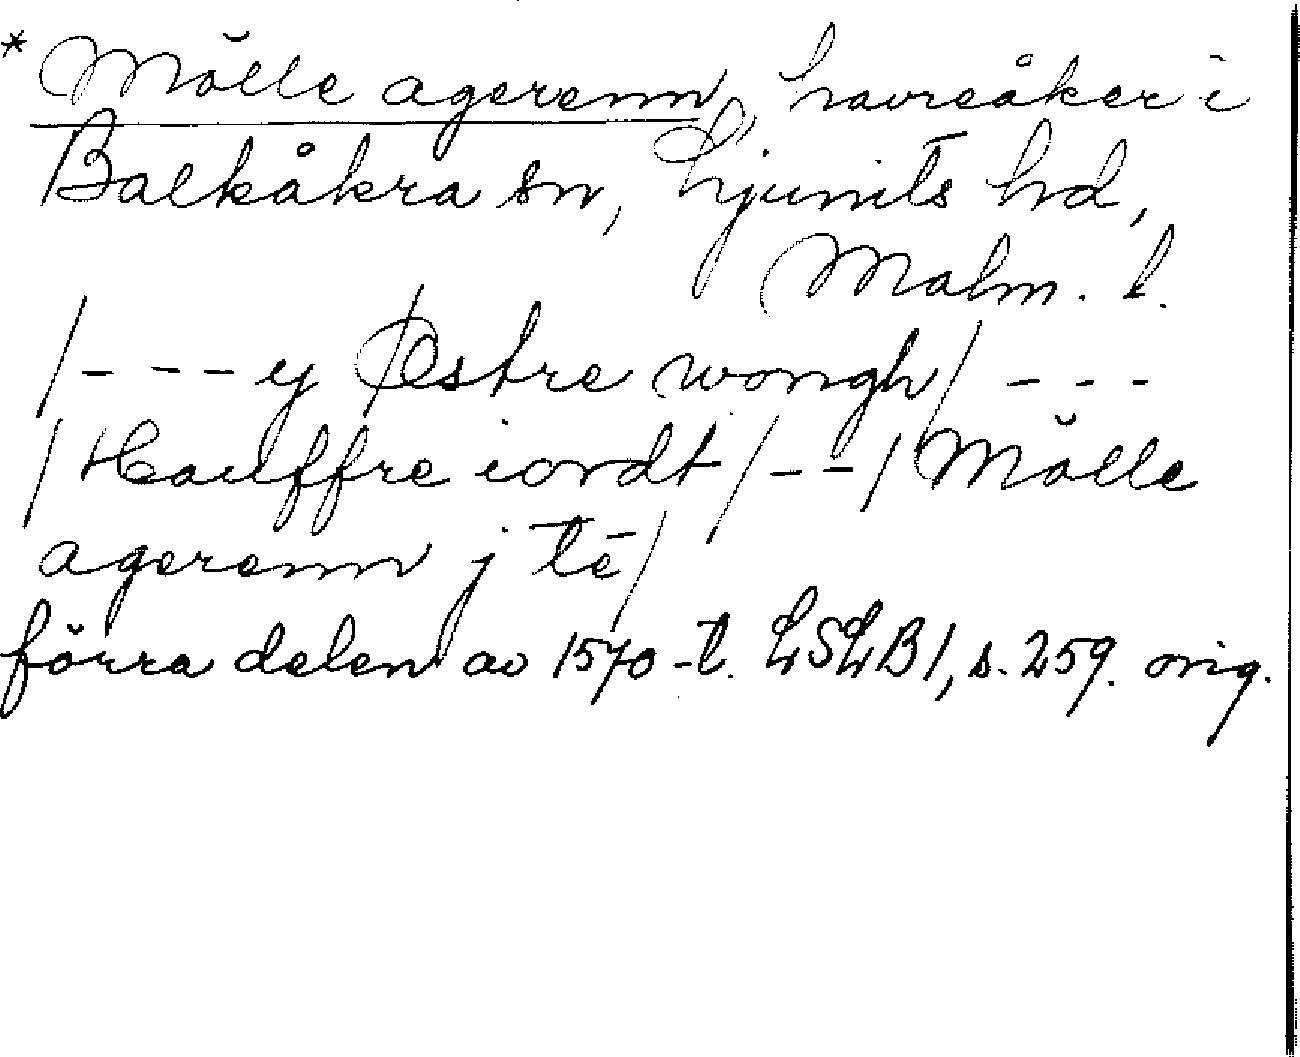 * Mölle agerenn, havreåker i
Balkåkra sn, Ljunits hd,
Malm. l.
/- - - y Østre wongh/ - - -
/Hauffre iordt/- -/ Mölle
agerenn j tē/
förra delen av 1570-t. LSLB1, s. 259. orig.